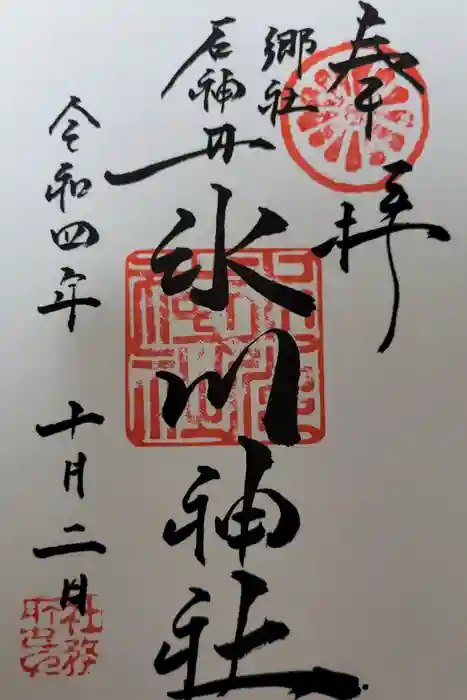 奉拝
郷社
石神井
氷川神社
令和四年 十月二日
社務所印